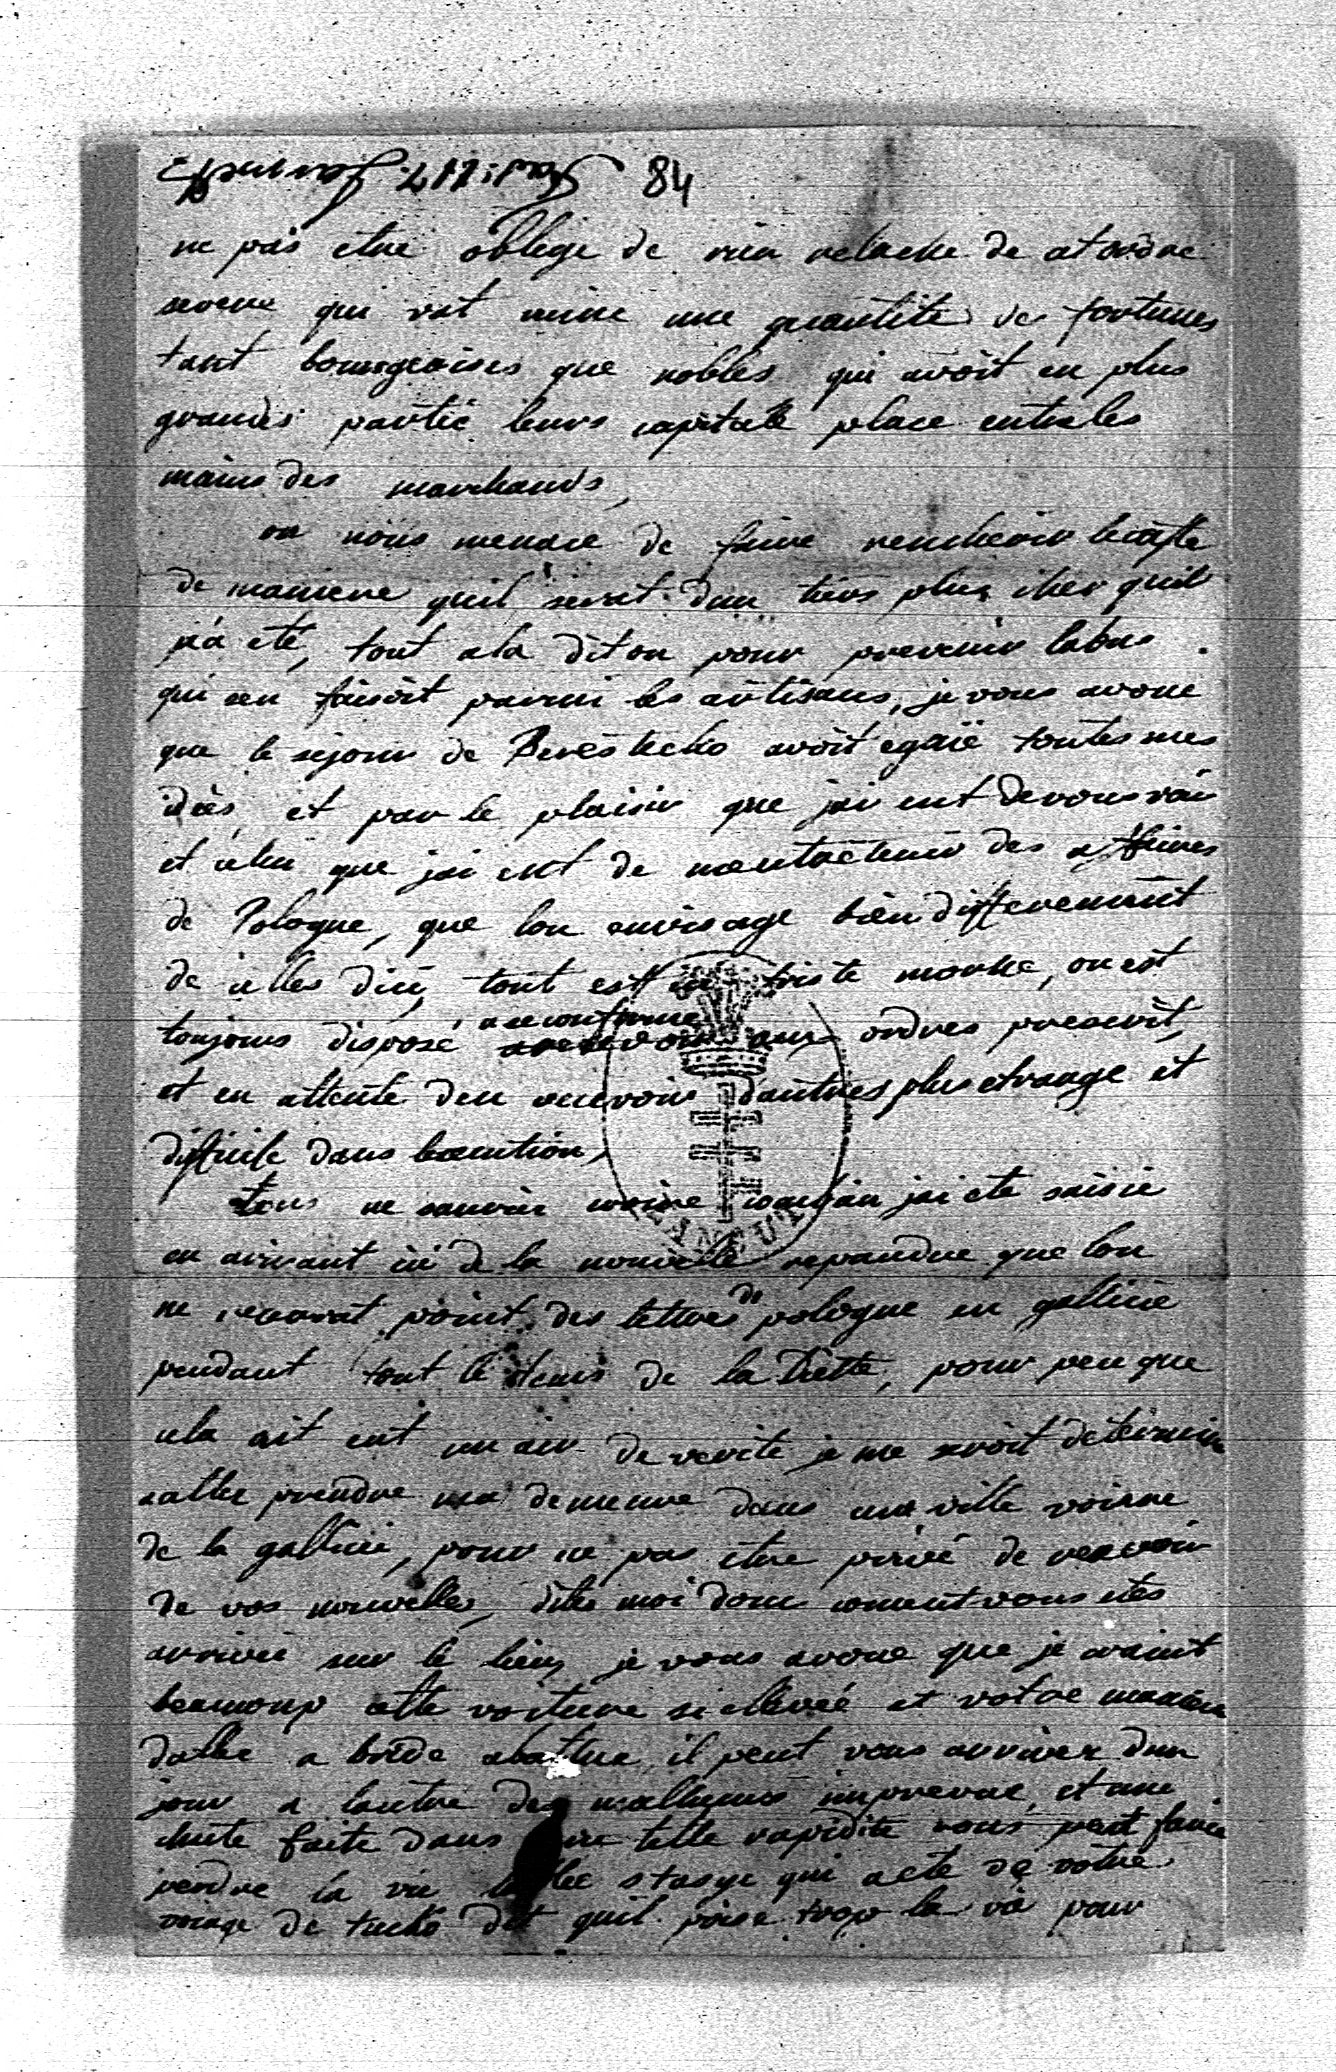 84
ne pas etre oblige de rien relache de at ordre
severe qui vat ruine une quantite de fortunes
tant bourgeoises que nobles qui avoit en plus
grandes partie leurs capitale place entre les
mains des marchands,
on nous menace de faire rencherir le caffe
de maniere quil serat dun tiers plus cher quil
n'a ete, tout cela dit on pour prevenir labus
qui sen faisoit parmi les artisans, je vous avoue
que le sejour de Berestecko avoit egaïe toutes mes
idées, et par le plaisir que jai eut de vous voir
et celui que jai eut de mentretenir des affaires
de Pologne, que lon envisage bien differement
de celles dici, tout est ici triste morne, on est
toujours disposé a se conforme aux ordres prescrit,
et en attente den recevoir dautres plus etrange et
difficile dans lexecution,
vous ne sauries croire combien jai ete saisie
en arivant ici de la nouvelle repandue que lon
ne recevrat point des lettres de pologne en gallicie
pendant tout le tems de la Diette, pour peu que
cela ait eut un air de verite je me seroit determine
a aller prendre ma demeure dans une ville voisine
de la gallicie, pour ne pas etre privé de recevoir
de vos nouvelles, dites moi donc coment vous etes
arrivée sur le lieu, je vous avoue que je craint
beaucoup cette voiture si elevée et votre maniere
daller a bride abattue, il peut vous arriver dun
jour a lautre des malheurs imprevue, et une
chute faite dans une telle rapidite vous peut faire
perdre la vie stasye qui a ete de votre
voiage de tucko dit quil prise trop la vie pour